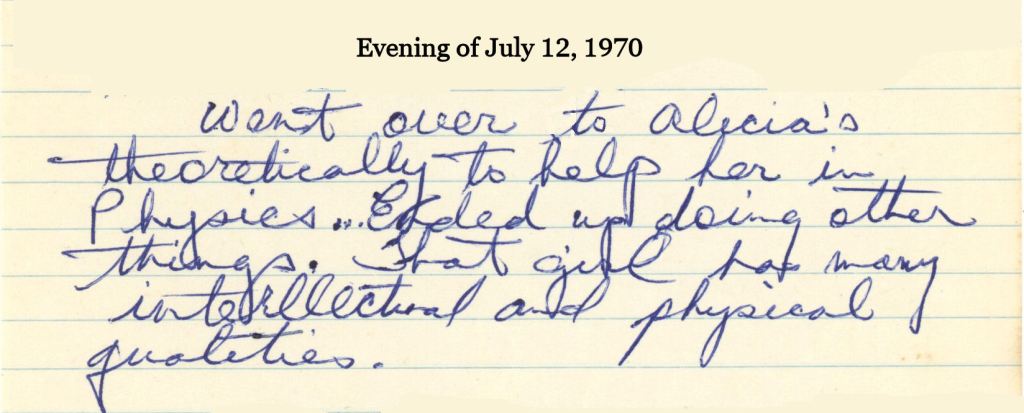 Evening of July 12, 1970
Went over to Alicia's
theoretically to help her in
Physics...Ended up doing other
things. That girl has many
intellectual and physical
qualities.